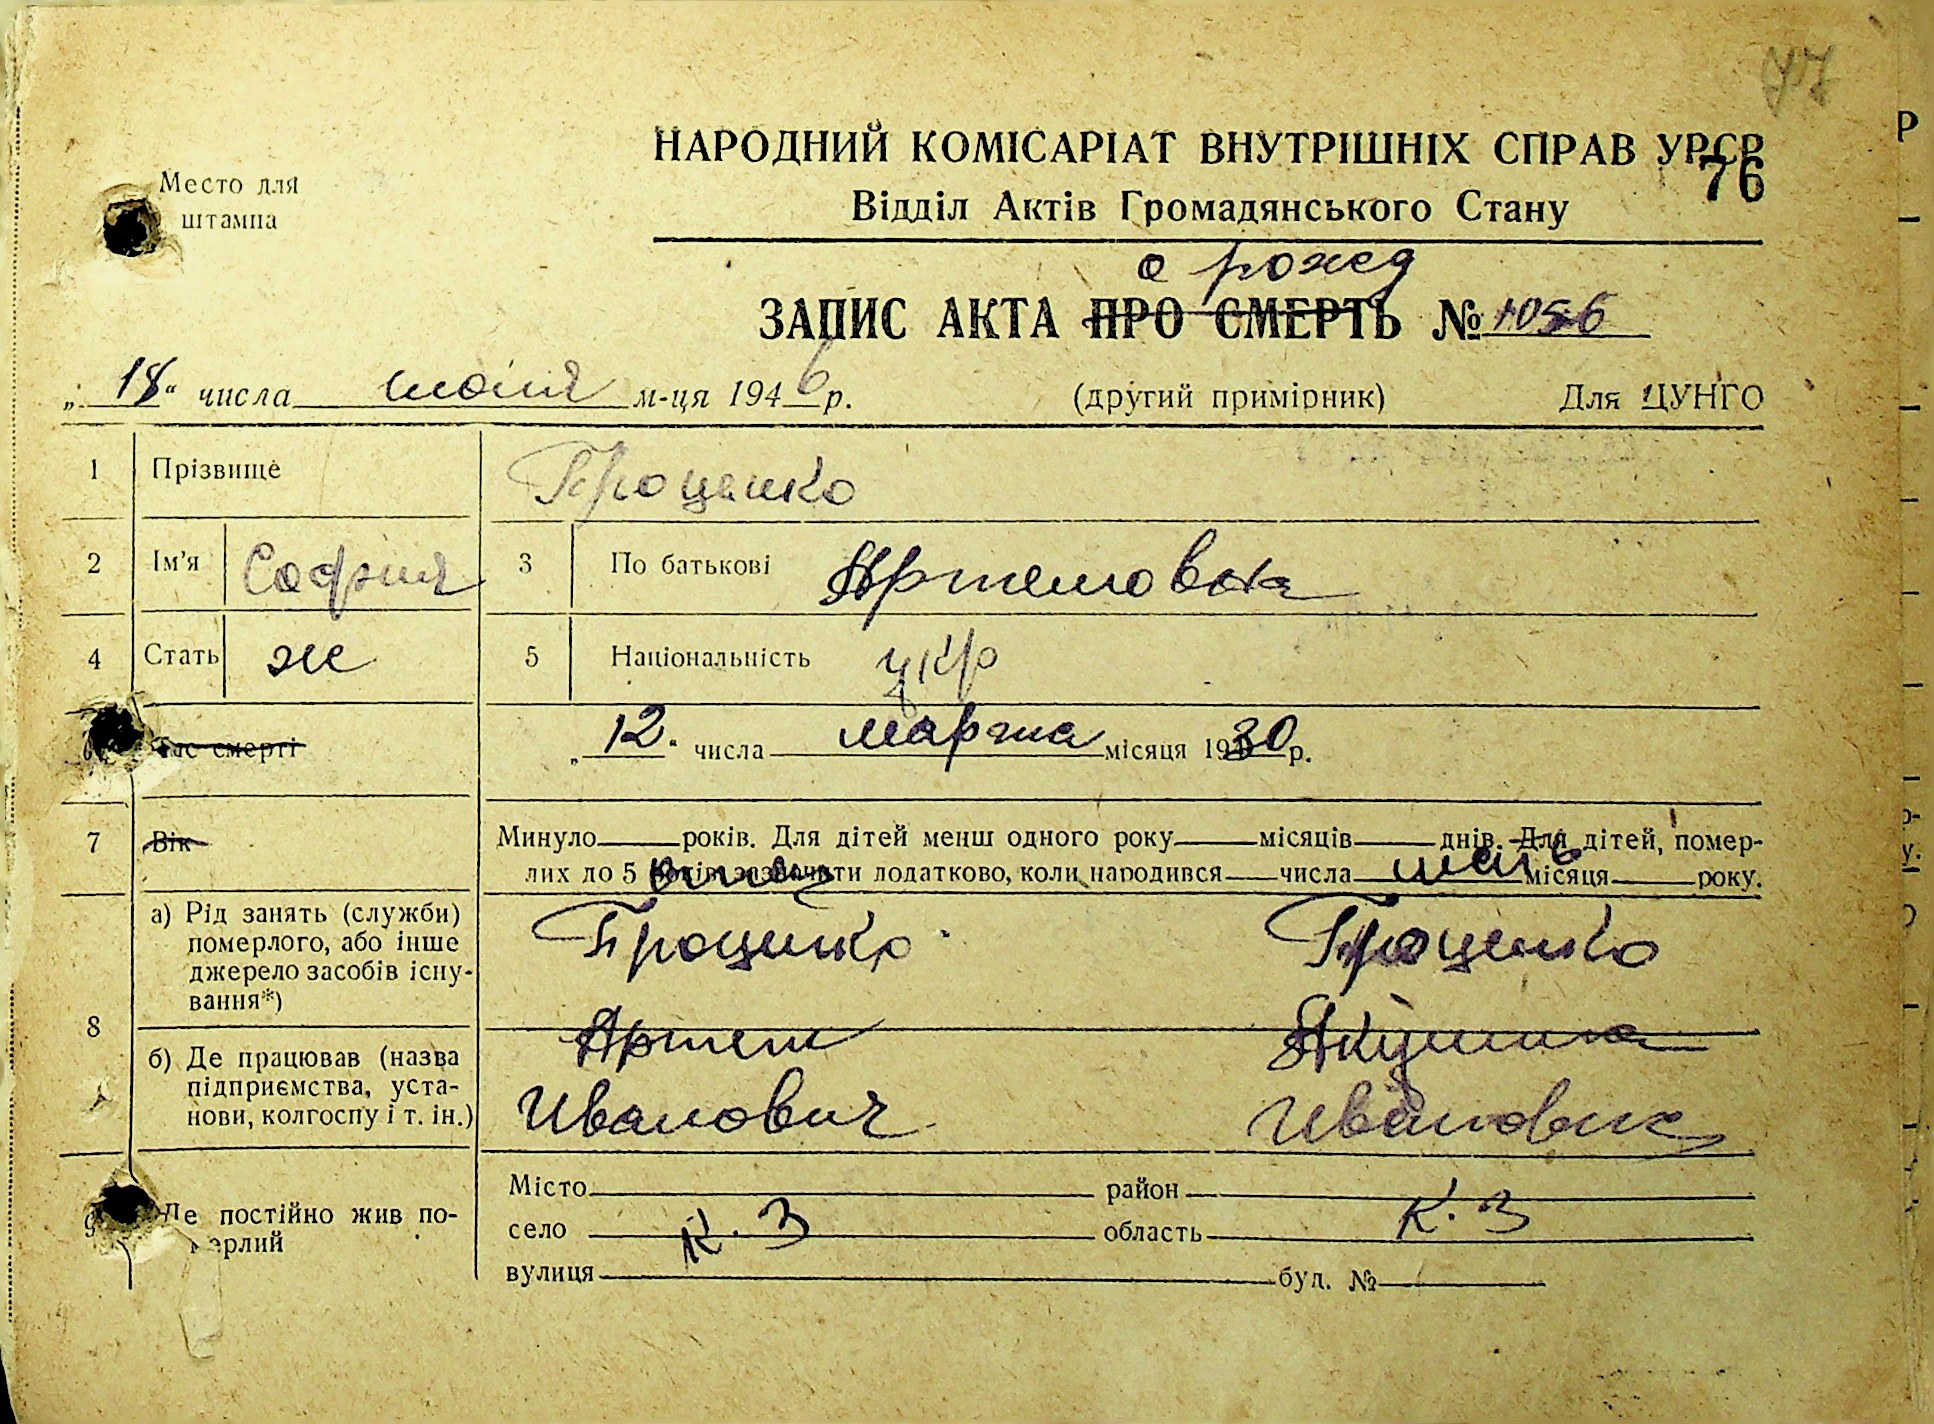 77
НАРОДНИЙ КОМІСАРІАТ ВНУТРІШНІХ СПРАВ УРСР
76
Место для
штампа
Відділ Актів Громадянського Стану
о рожд
ЗАПИС АКТА ПРО СМЕРТЬ № 1056
„18“ числа июня м-ця 1946 р. (другий примірник) Для ЦУНГО
1 Прізвище Проценко
2 Ім'я София 3 По батькові Артемовна
4 Стать ж 5 Національність укр
6 Час смерті „12“ числа марта місяця 1930 р.
7 Вік Минуло років. Для дітей менш одного року місяців днів. Для дітей, помер-
лих до 5 років зазначати додатково, коли народився числа місяця року.
отец мать
8 а) Рід занять (служби)
померлого, або інше
джерело засобів існу-
вання*)
Проценко Проценко
б) Де працював (назва
підприємства, уста-
нови, колгоспу і т. ін.)
Артем
Иванович Ивановна
9 Де постійно жив по-
мерлий
Місто район
село К. З область К. З
вулиця буд. №